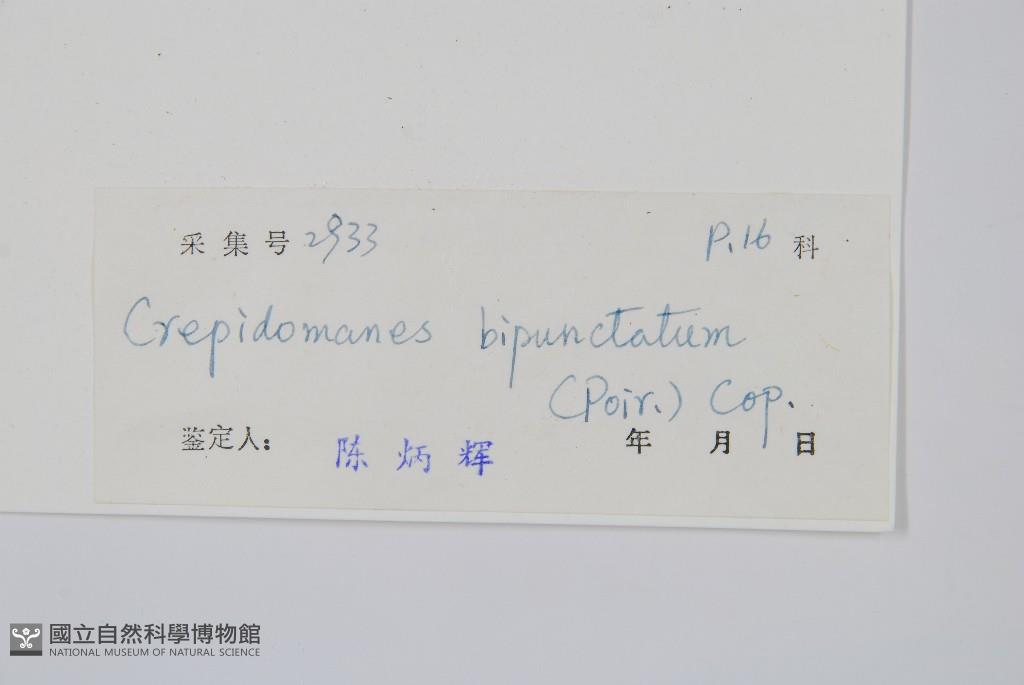 采集号 2933 P.16 科
Crepidomanes bipunctatum
(Poir.) Cop.
鉴定人： 陈炳辉 年 月 日
國立自然科學博物館
NATIONAL MUSEUM OF NATURAL SCIENCE